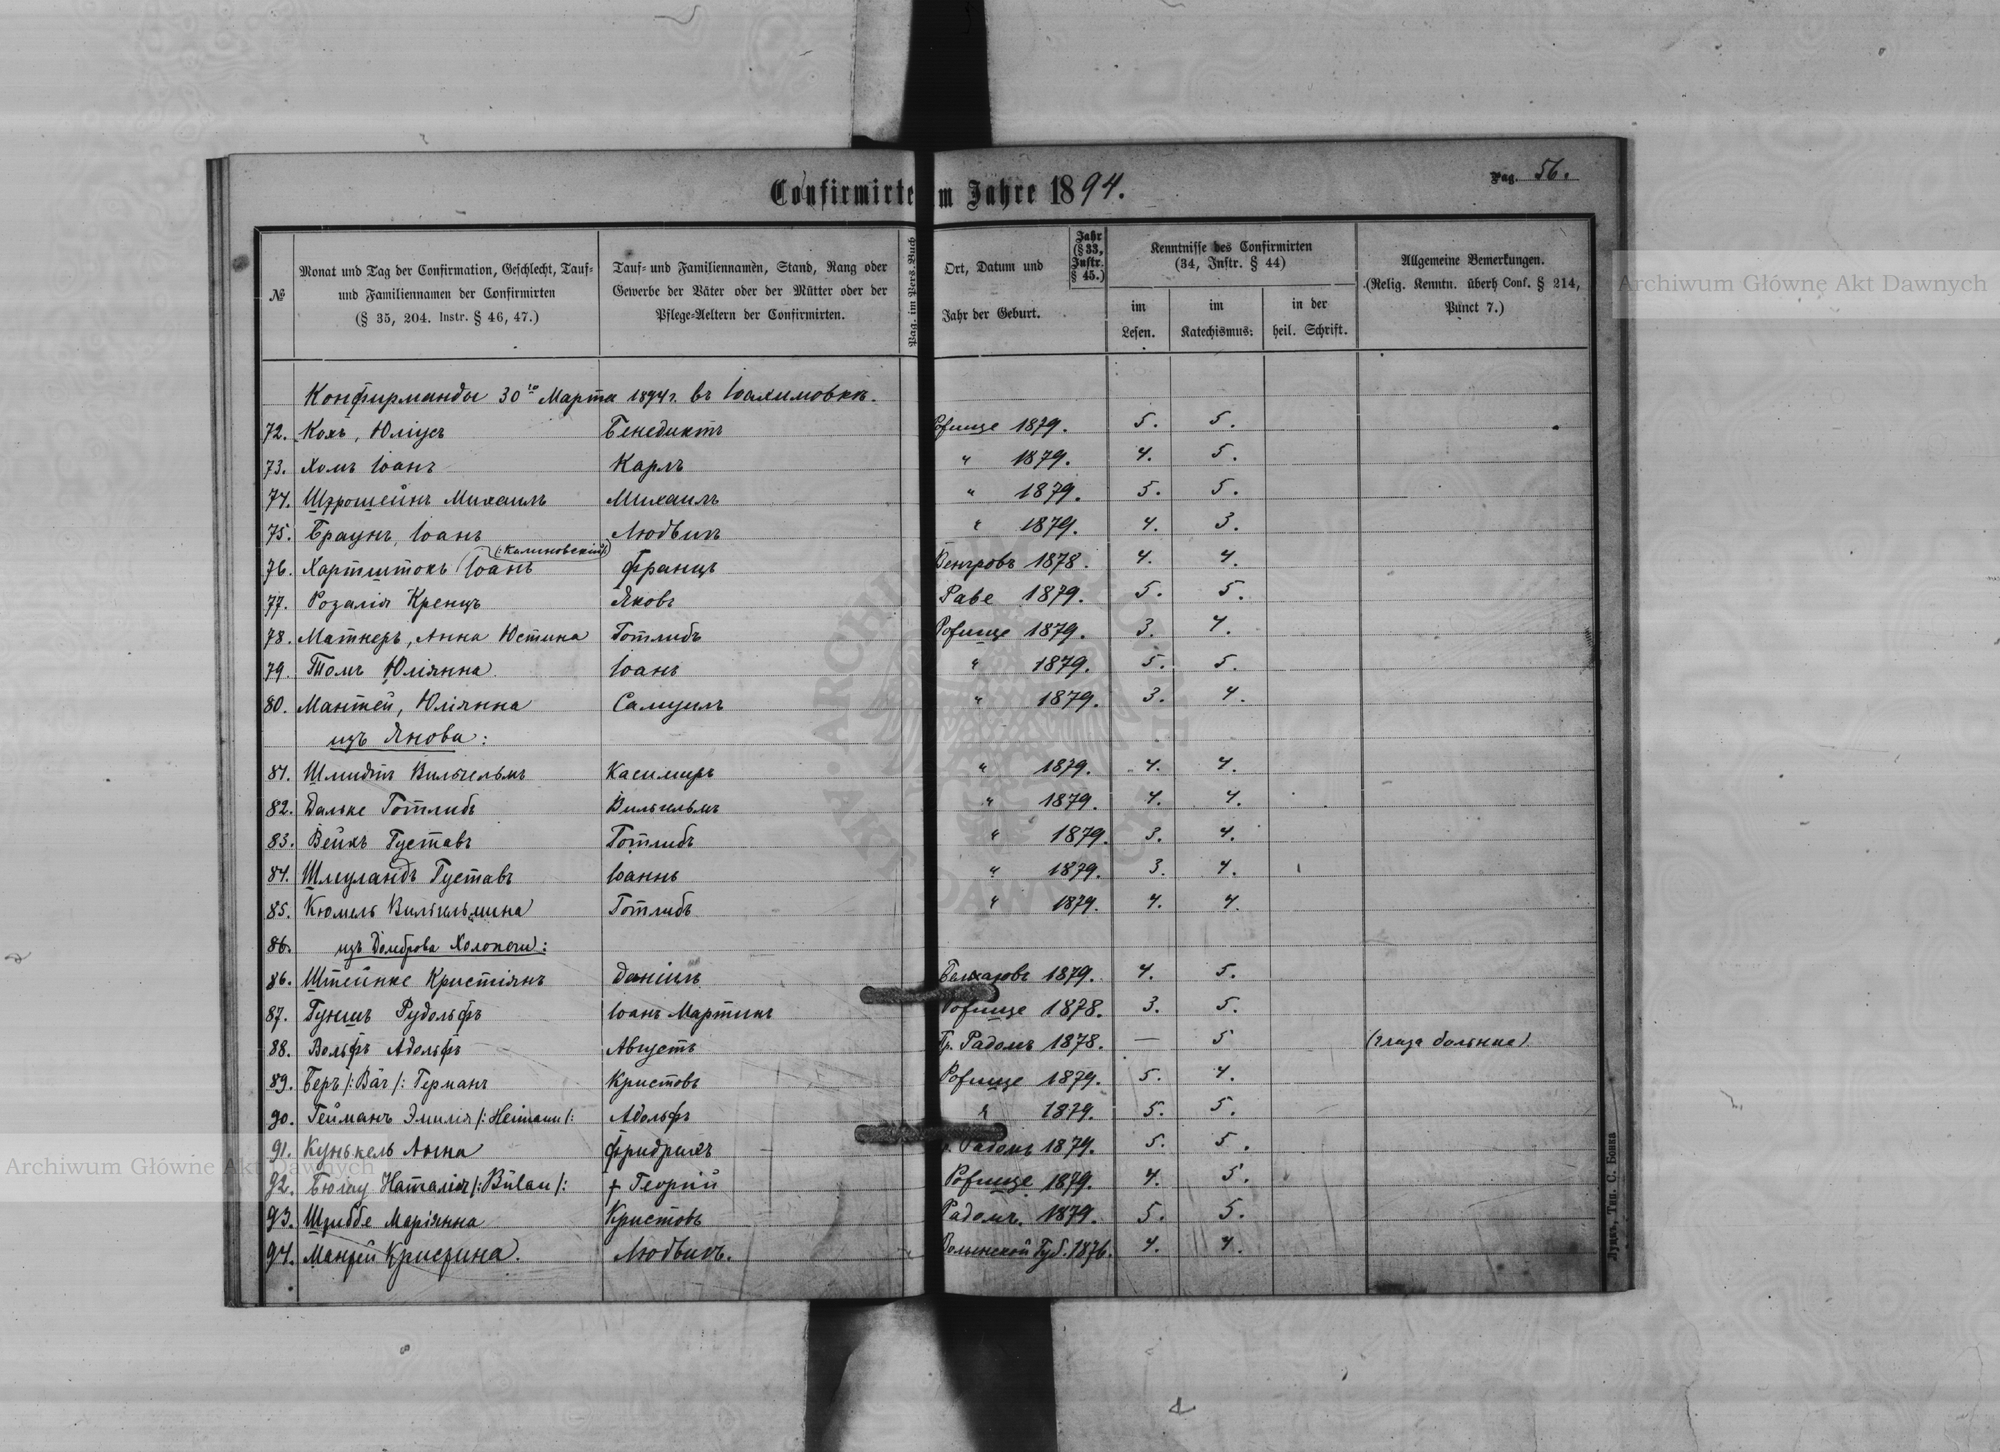 Confirmirte im Jahre 1894.
Pag. 56.
№
Monat und Tag der Confirmation, Geschlecht, Tauf-
und Familiennamen der Confirmirten
(§ 35, 204. Instr. § 46, 47.)
Tauf- und Familiennamen, Stand, Rang oder
Gewerbe der Väter oder der Mütter oder der
Pflege-Aeltern der Confirmirten.
Pag. im Pers. Buch
Ort, Datum und
Jahr der Geburt.
Jahr
(§ 33,
Instr.
§ 45.)
Kenntnisse des Confirmirten
(34, Instr. § 44)
im
Lesen.
im
Katechismus.
in der
heil. Schrift.
Allgemeine Bemerkungen.
(Relig. Kenntn. überh Conf. § 214,
Punct 7.)
Archiwum Główne Akt Dawnych
Конфирманды 30го Марта 1894г. въ Іоахимовкѣ.
72. Кохъ, Юліусъ Бенедиктъ Рожище 1879. 5. 5.
73. Хомъ Іоанъ Карлъ " 1879. 4. 5.
74. Михаилъ Михаилъ " 1879. 5. 5.
75. Браунъ, Іоанъ Людвигъ " 1879. 4. 3.
(:Калиновскій:)
76. Хартштокъ Іоанъ Францъ Венгровъ 1878. 4. 4.
77. Розалія Кренцъ Яковъ Раве 1879. 5. 5.
78. Матнеръ, Анна Юстина Готлибъ Рожище 1879. 3. 4.
79. Томъ Юліянна Іоанъ " 1879. 5. 5.
80. Мантей, Юліянна Самуилъ " 1879. 3. 4.
изъ Янова:
81. Шмидтъ Вильгельмъ Касимиръ " 1879. 4. 4.
82. Дальке Готлибъ Вильгельмъ " 1879. 4. 4.
83. Вейкъ Густавъ Готлибъ " 1879. 3. 4.
84. Шлеуландъ Густавъ Іоаннъ " 1879. 3. 4.
85. Кюмель Вильгельмина Готлибъ " 1879. 4. 4.
86. изъ Домброва :
86. Штейнке Кристіянъ Даніилъ 1879. 4. 5.
87. Гуншъ Рудольфъ Іоанъ Мартинъ Рожище 1878. 3. 5.
88. Вольфъ Адольфъ Августъ Гр. Радомъ 1878. — 5 (глаза больные)
89. Беръ /:Bär/: Германъ Кристовъ Рожище 1879. 5. 4.
90. Гейманъ Эмилія /:Heimann/: Адольфъ " 1879. 5. 5.
91. Кункель Анна Фридрихъ Радомъ 1879. 5. 5.
92. Бюлау Наталія /:Bülau/: † Георгій Рожище 1879. 4. 5.
93. Маріянна Кристовъ Радомъ. 1879. 5. 5.
94. Кристина. Людвигъ. Волынской Губ. 1876. 4. 4.
Луцкъ, Тип. С. Бокка
Archiwum Główne Akt Dawnych